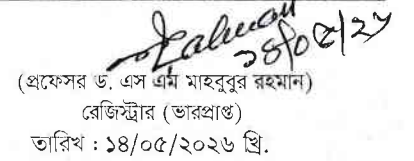 ১৪/০৫/২৬
(প্রফেসর ড. এস এম মাহবুবুর রহমান)
রেজিস্ট্রার (ভারপ্রাপ্ত)
তারিখ : ১৪/০৫/২০২৬ খ্রি.